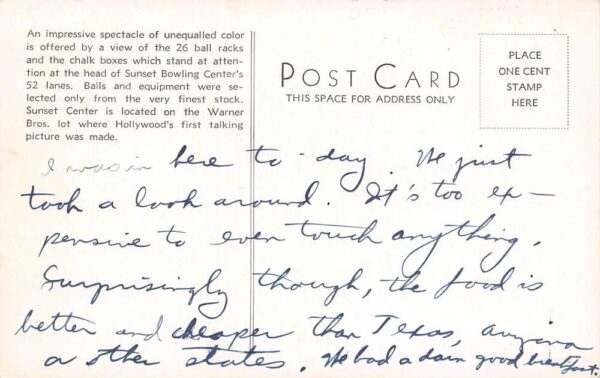 An impressive spectacle of unequalled color
is offered by a view of the 26 ball racks
and the chalk boxes which stand at atten-
tion at the head of Sunset Bowling Center's
52 lanes. Balls and equipment were se-
lected only from the very finest stock.
Sunset Center is located on the Warner
Bros. lot where Hollywood's first talking
picture was made.
POST CARD
THIS SPACE FOR ADDRESS ONLY
PLACE
ONE CENT
STAMP
HERE
I was in here to-day. We just
took a look around. It's too ex-
pensive to even touch anything.
Surprisingly though, the food is
better and cheaper than Texas, Arizona
or other states. We had a darn good breakfast.